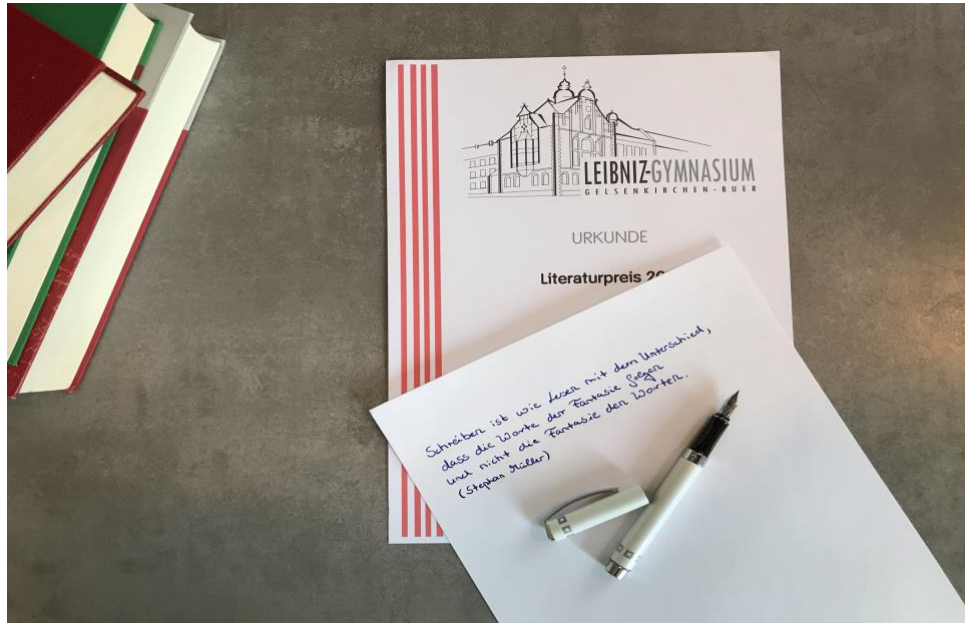 LEIBNIZ-GYMNASIUM
GELSENKIRCHEN-BUER
URKUNDE
Literaturpreis 20
Schreiben ist wie Lesen mit dem Unterschied,
dass die Worte der Fantasie folgen
und nicht die Fantasie den Worten.
(Stephan Müller)